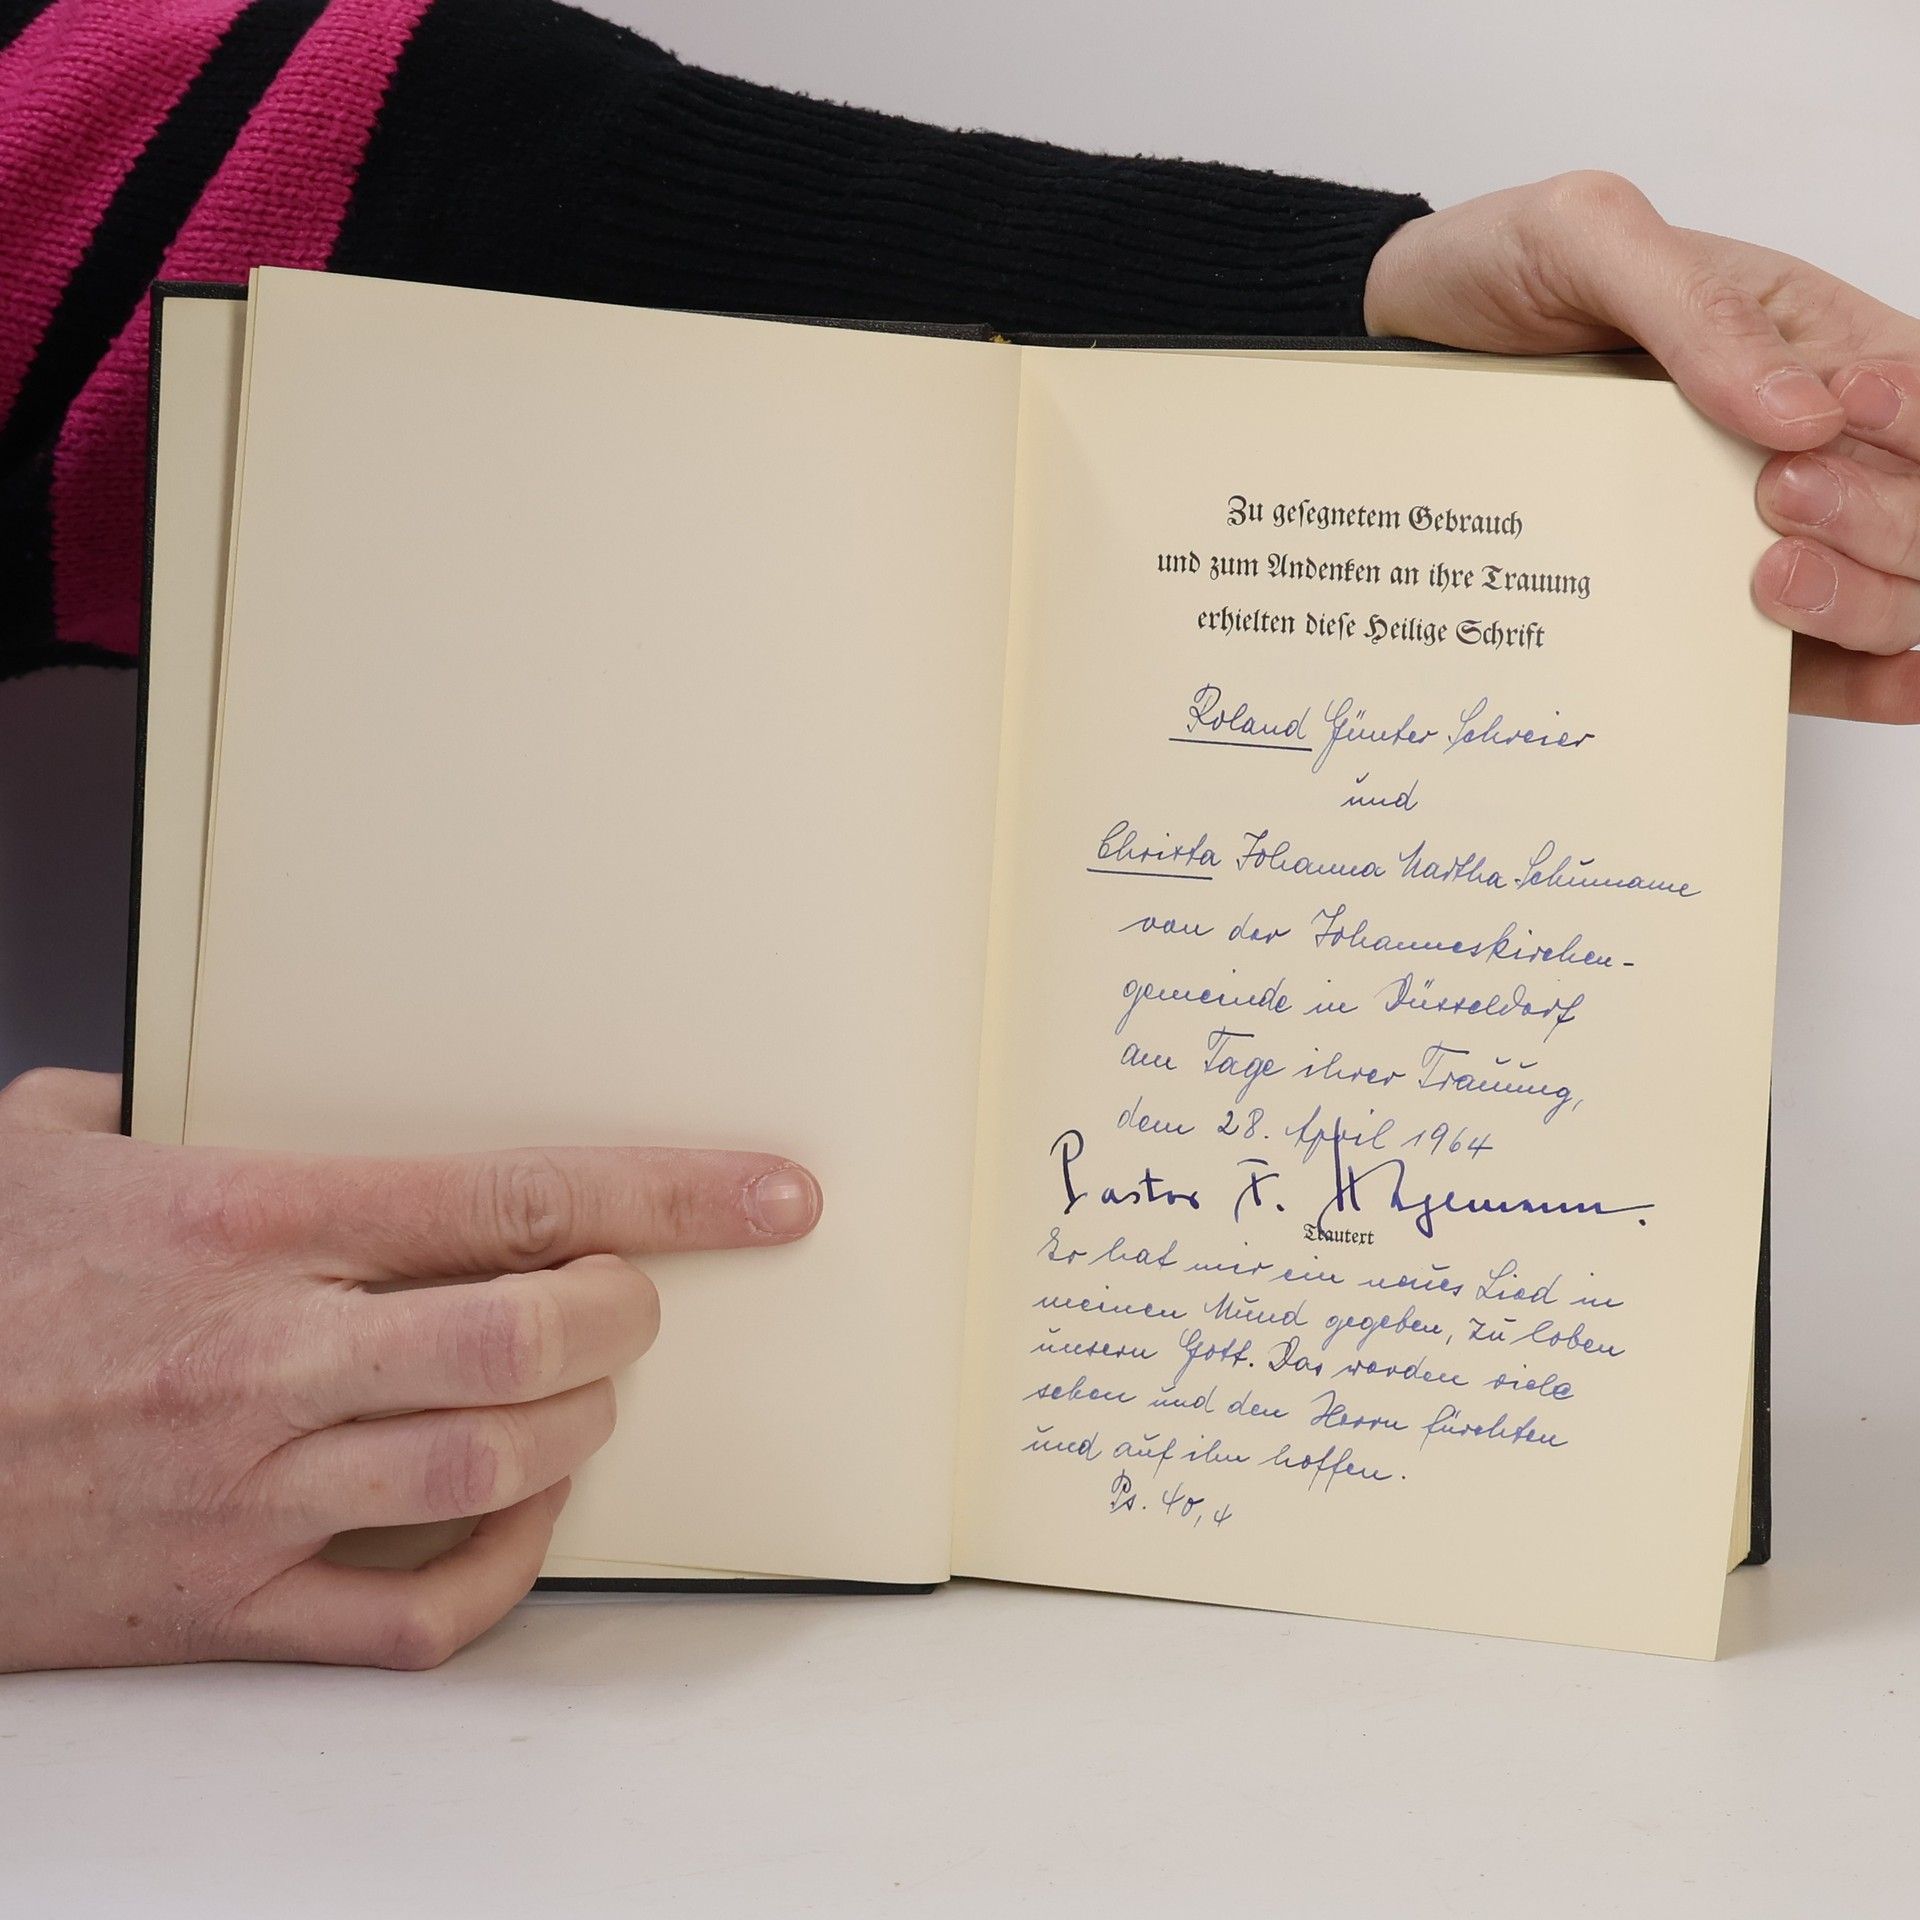 Zu gesegnetem Gebrauch
und zum Andenken an ihre Trauung
erhielten diese Heilige Schrift
Roland Günter Schreier
und
Christa Johanna Martha
von der Johanneskirchen-
gemeinde in Düsseldorf
am Tage ihrer Trauung,
dem 28. April 1964
Pastor F.
Trautext
Er hat mir ein neues Lied in
meinen Mund gegeben, zu loben
unsern Gott. Das werden viele
sehen und den Herrn fürchten
und auf ihn hoffen.
Ps. 40,4